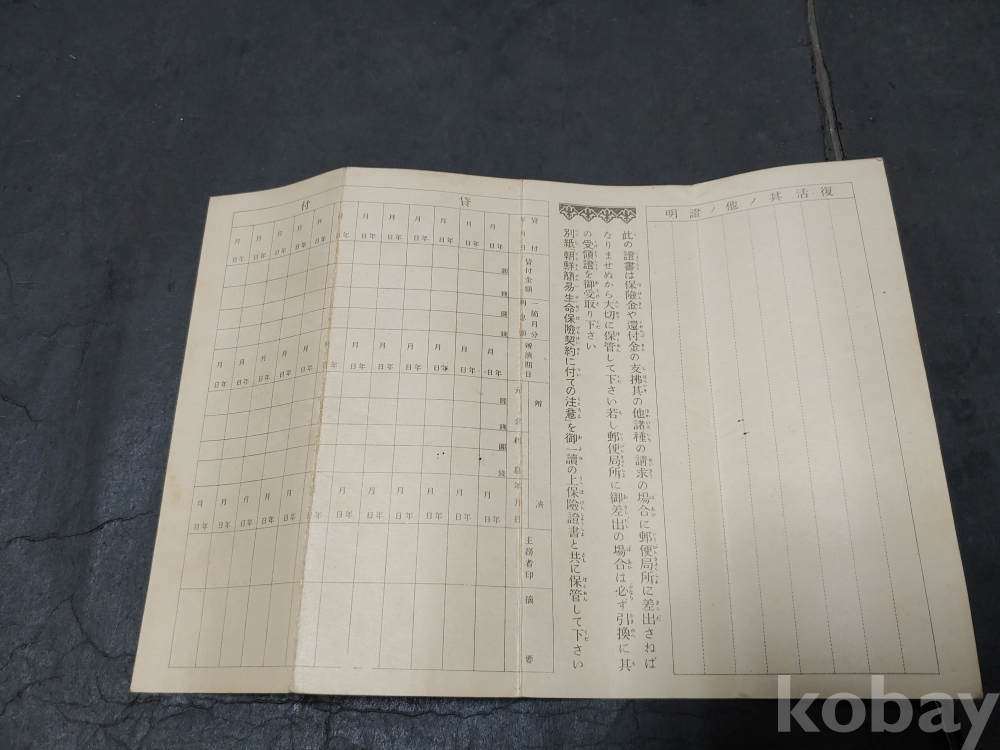 復活其ノ他ノ證明
此の證書は保險金や還付金の支拂其の他諸種の請求の場合に郵便局所に差出さねば
なりませぬから大切に保管して下さい若し郵便局所に御差出の場合は必ず引換に其
の受領證を御受取り下さい
別紙「朝鮮簡易生命保險契約に付ての注意」を御一讀の上保險證書と共に保管して下さい
貸付
貸付年月日
貸付金額
一箇月分利息額
辨濟期日
辨濟
元金
利息
年月日
主務者印
摘要
kobay